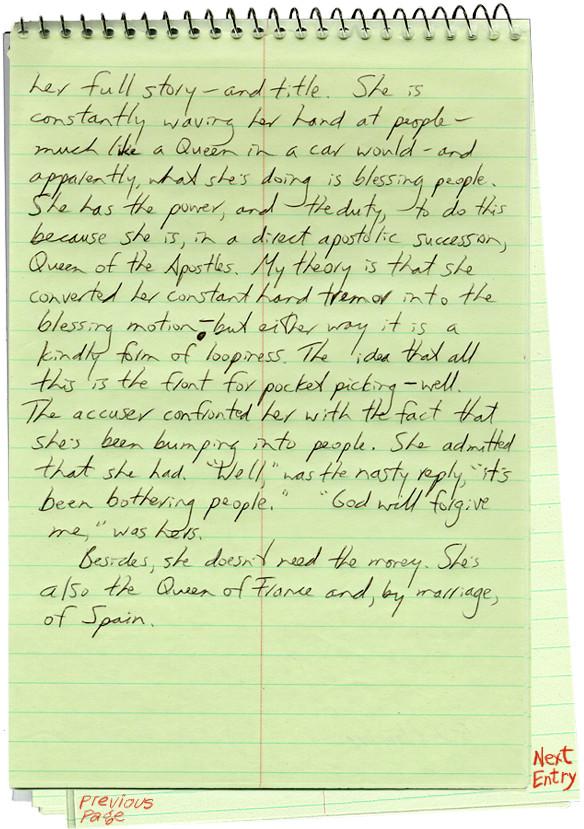 her full story – and title. She is
constantly waving her hand at people –
much like a Queen in a car would – and
apparently, what she's doing is blessing people.
She has the power, and the duty, to do this
because she is, in a direct apostolic succession,
Queen of the Apostles. My theory is that she
converted her constant hand tremor into the
blessing motion – but either way it is a
kindly form of loopiness. The idea that all
this is the front for pocket picking – well.
The accuser confronted her with the fact that
she's been bumping into people. She admitted
that she had. "Well," was the nasty reply, "it's
been bothering people." "God will forgive
me," was hers.
Besides, she doesn't need the money. She's
also the Queen of France and, by marriage,
of Spain.
Next
Entry
Previous
Page